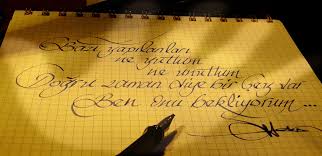 Bazı yapılanları
ne yuttum
ne unuttum
Doğru zaman diye bir gerçek var
Ben onu bekliyorum ...